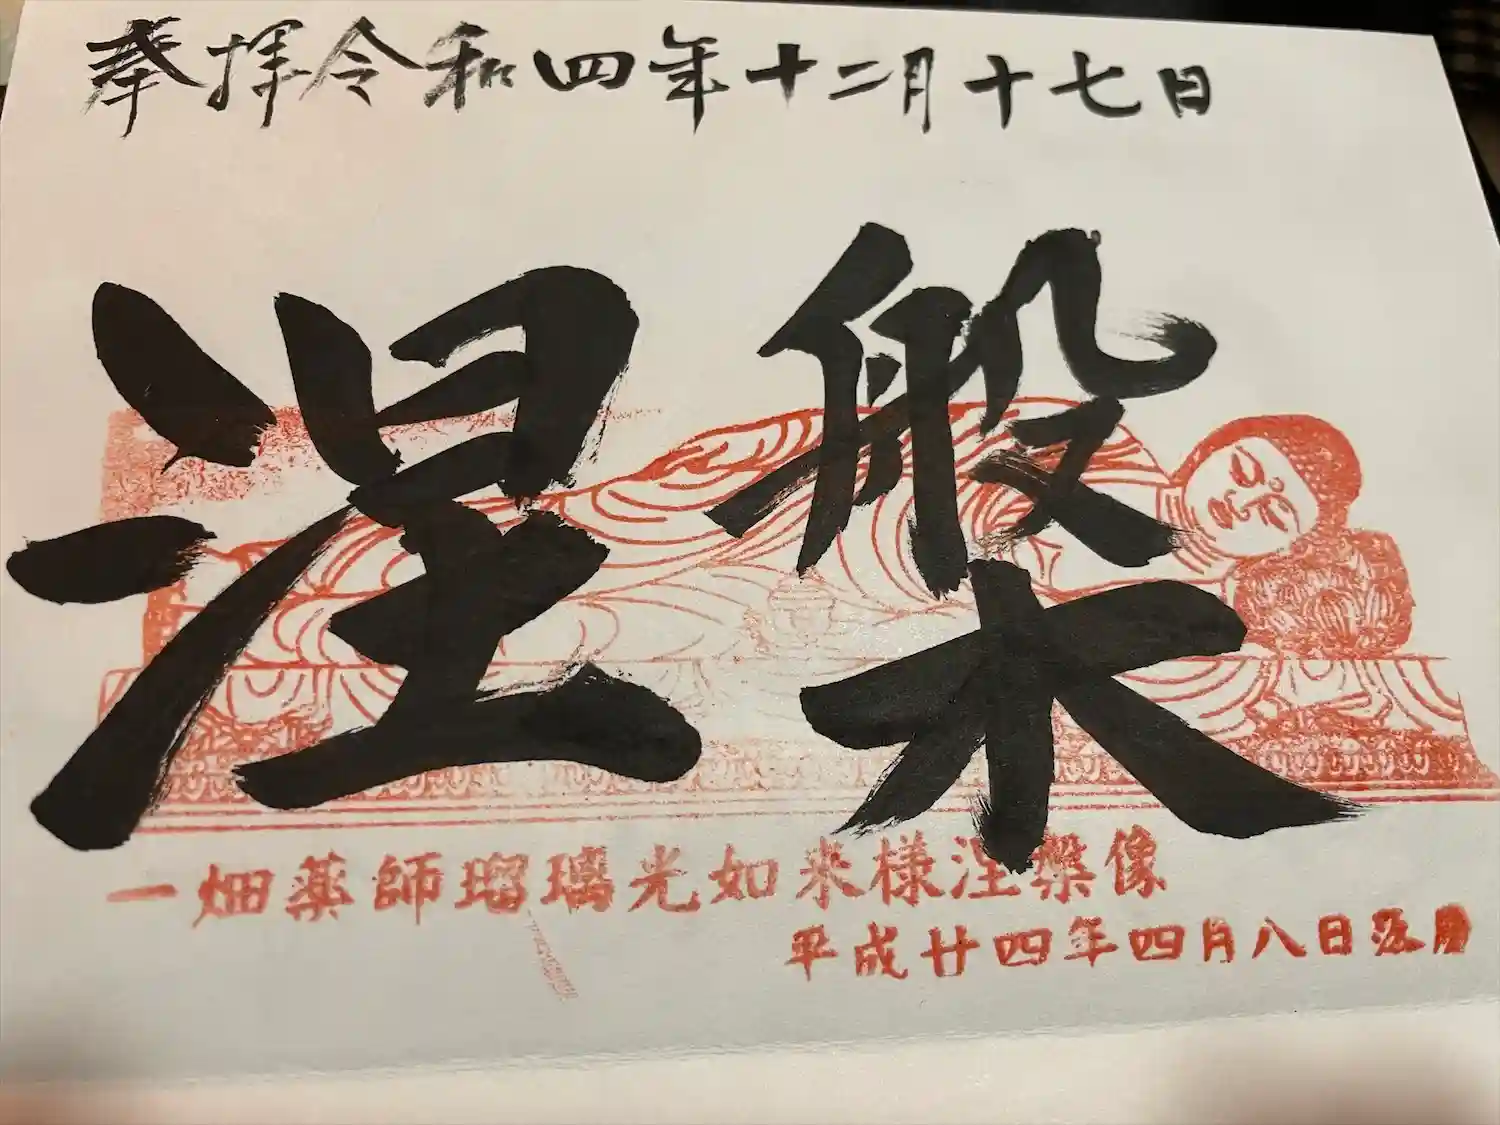 奉拝令和四年十二月十七日
涅槃
一畑薬師瑠璃光如来様涅槃像
平成廿四年四月八日